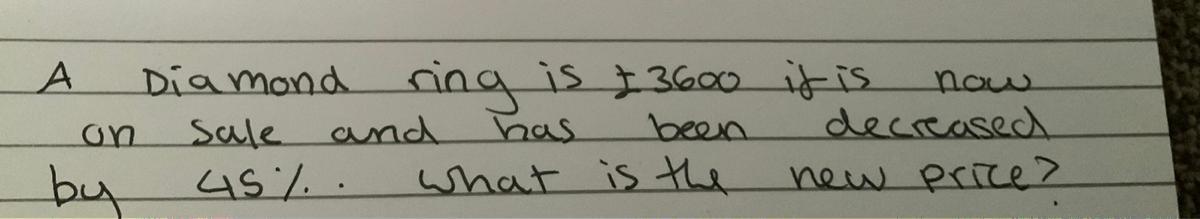 A Diamond ring is £3600 it is now
on sale and has been decreased
by 45%. What is the new price?